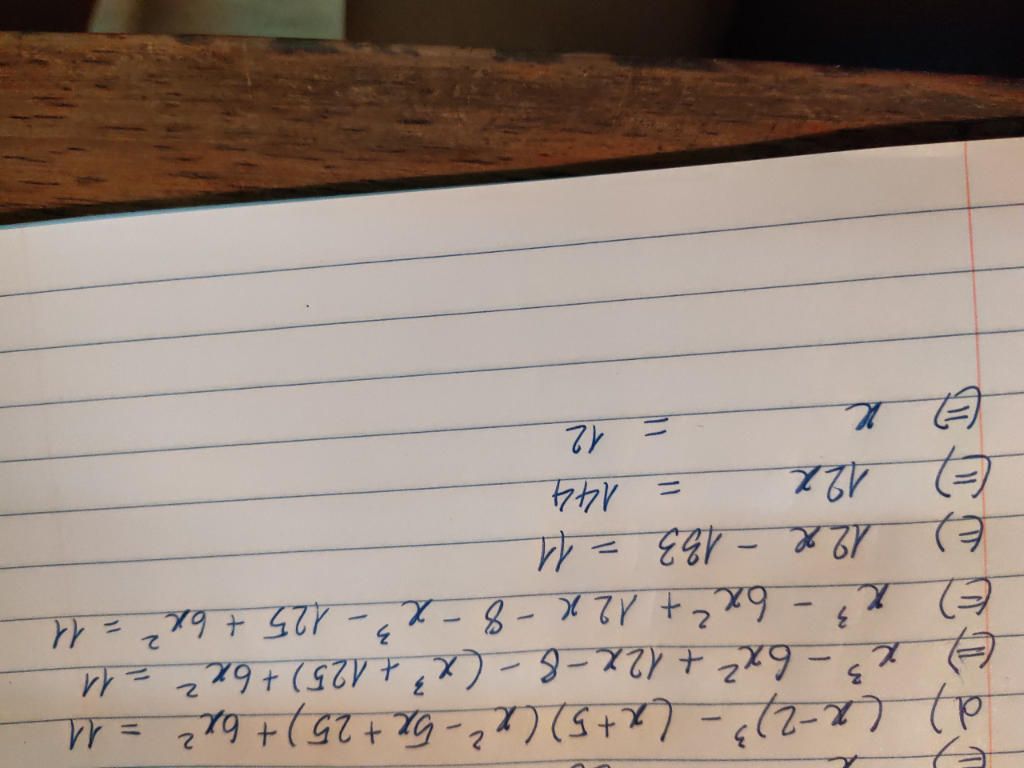 d) (x-2)³ - (x+5)(x²-5x+25)+6x² = 11
(=) x³ - 6x² + 12x - 8 - (x³ + 125)+6x² = 11
(=) x³ - 6x² + 12x - 8 - x³ - 125 + 6x² = 11
(=) 12x - 133 = 11
(=) 12x = 144
(=) x = 12